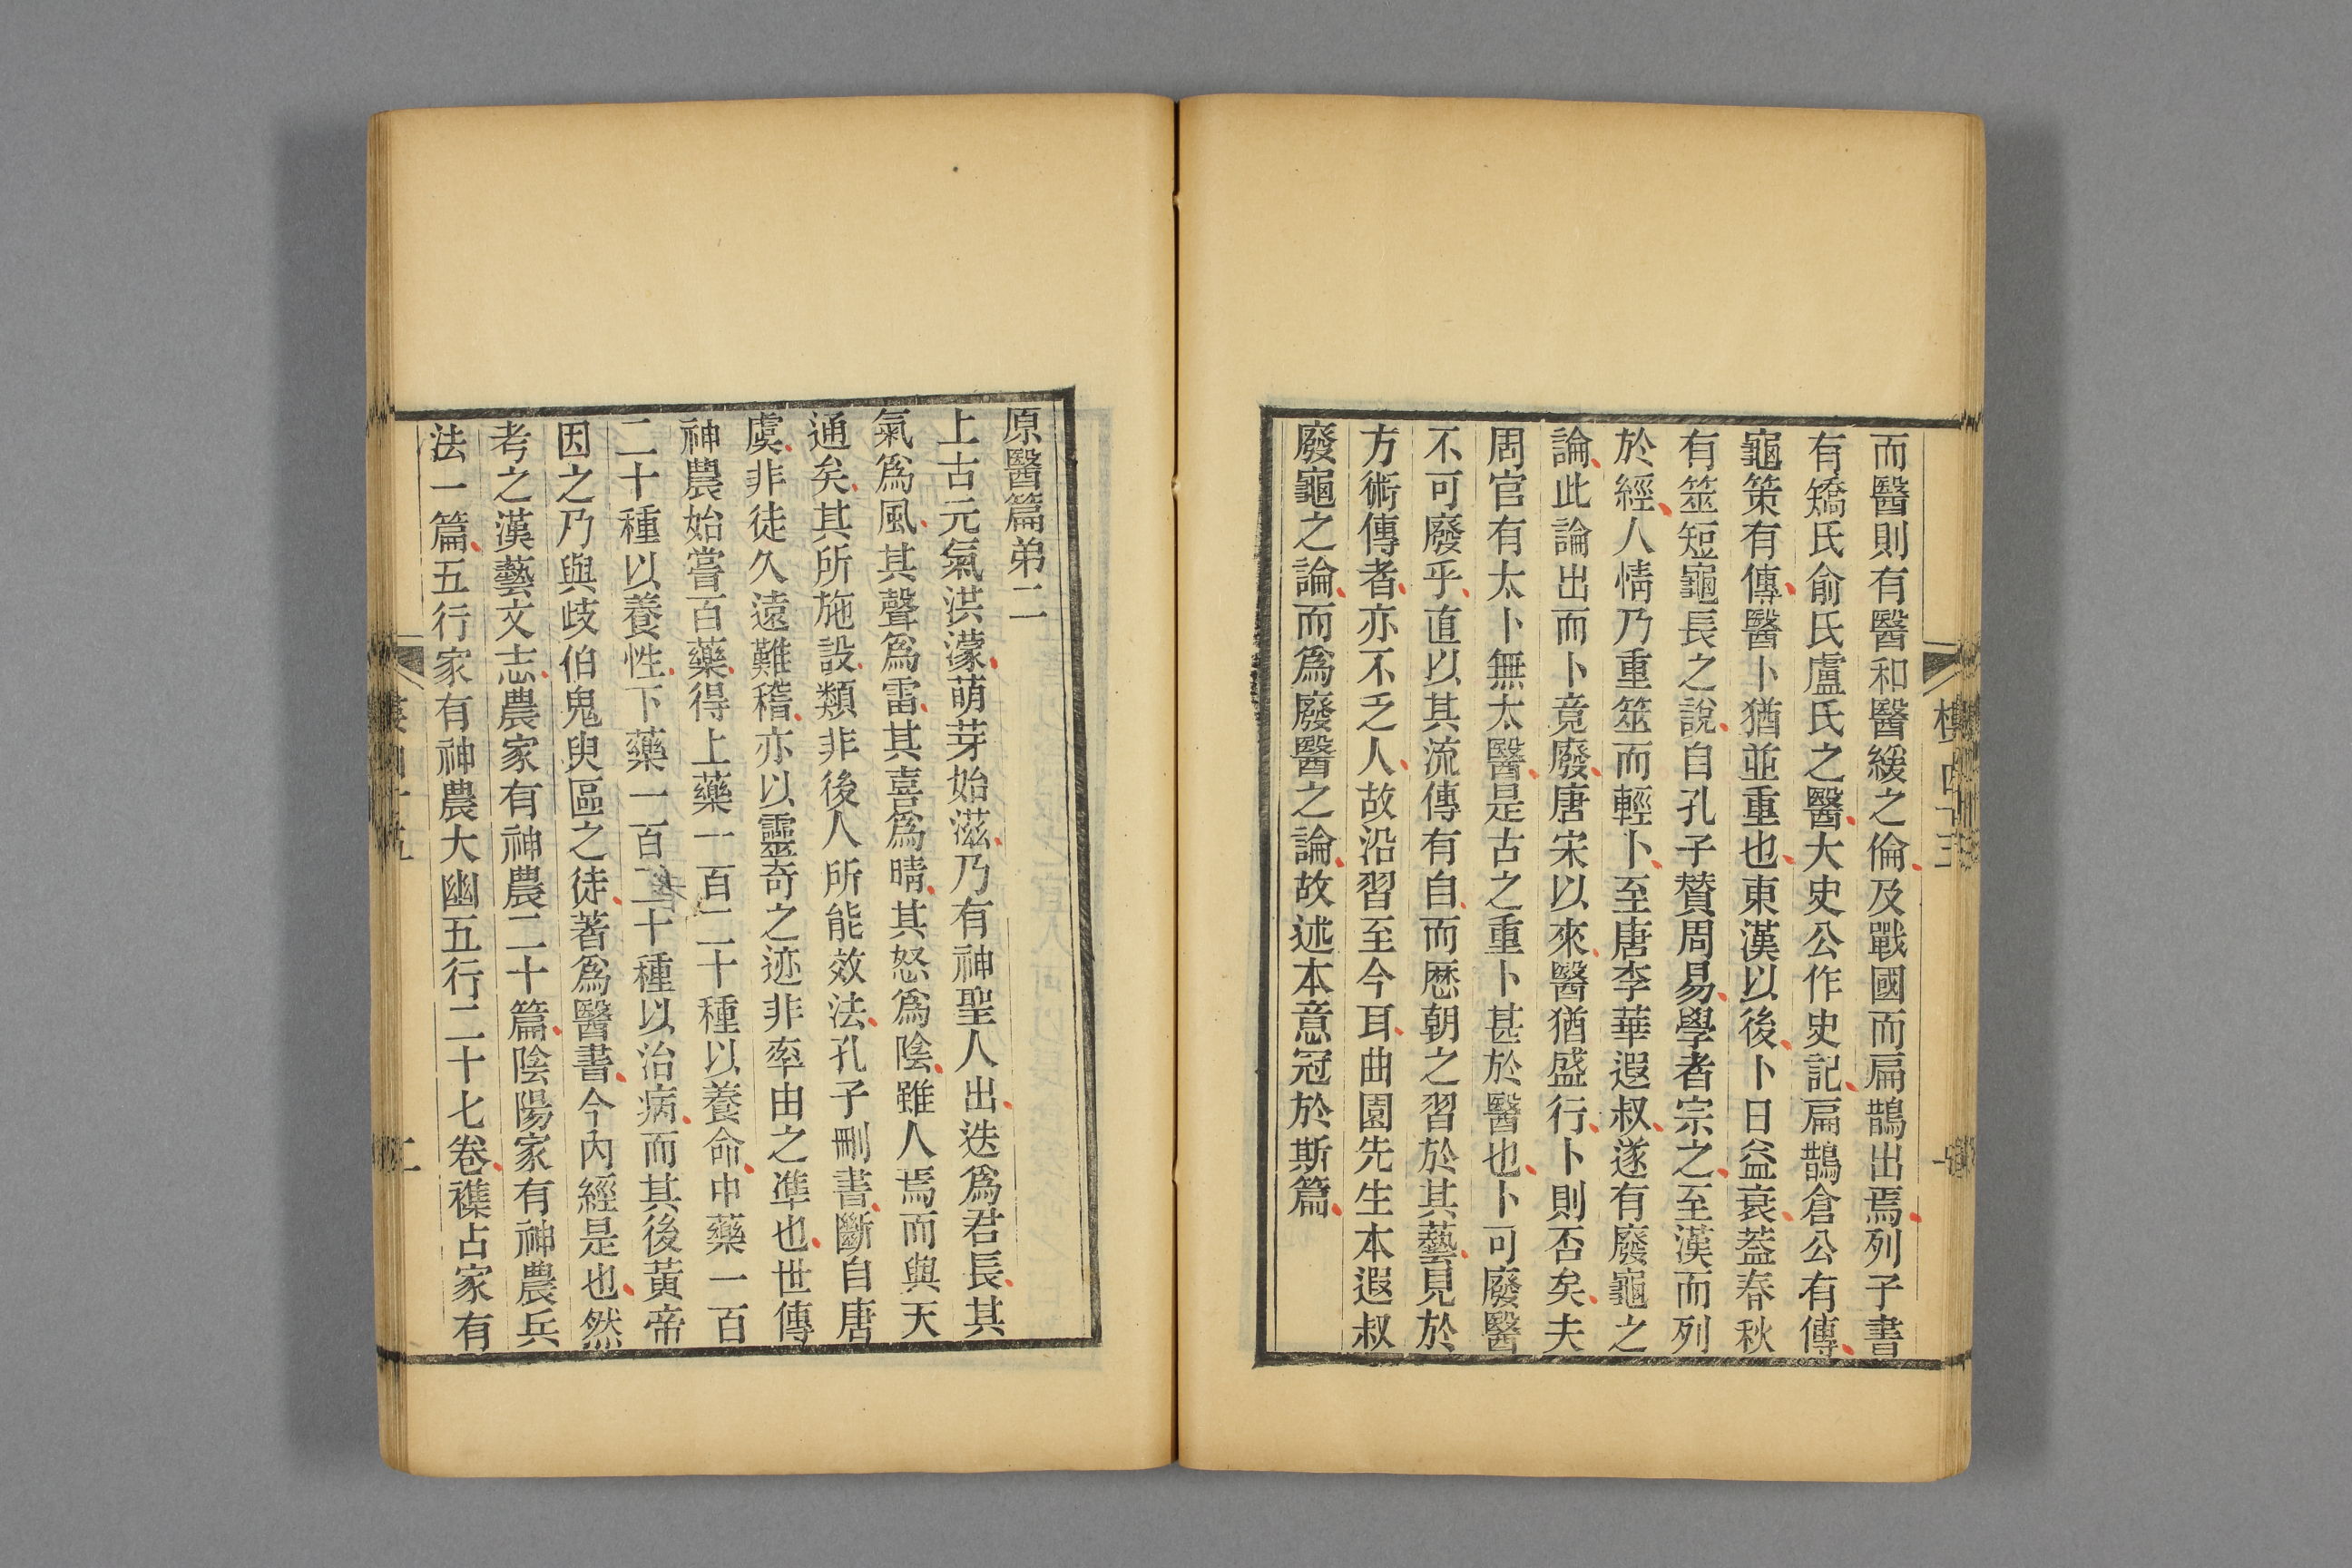 而醫則有醫和醫緩之倫及戰國而扁鵲出焉列子書
有矯氏俞氏盧氏之醫大史公作史記扁鵲倉公有傳
龜策有傳醫卜猶並重也東漢以後卜日益衰蓋春秋
有筮短龜長之說自孔子贊周易學者宗之至漢而列
於經人情乃重筮而輕卜至唐李華遐叔遂有廢龜之
論此論出而卜竟廢唐宋以來醫猶盛行卜則否矣夫
周官有太卜無太醫是古之重卜甚於醫也卜可廢醫
不可廢乎直以其流傳有自而歷朝之習於其藝見於
方術傳者亦不乏人故沿習至今耳曲園先生本遐叔
廢龜之論而爲廢醫之論故述本意冠於斯篇
原醫篇弟二
上古元氣洪濛萌芽始滋乃有神聖人出迭爲君長其
氣爲風其聲爲雷其喜爲晴其怒爲陰雖人焉而與天
通矣其所施設類非後人所能效法孔子刪書斷自唐
虞非徒久遠難稽亦以靈奇之迹非率由之準也世傳
神農始嘗百藥得上藥一百二十種以養命中藥一百
二十種以養性下藥一百二十種以治病而其後黃帝
因之乃與歧伯鬼臾區之徒著爲醫書今內經是也然
考之漢藝文志農家有神農二十篇陰陽家有神農兵
法一篇五行家有神農大幽五行二十七卷襍占家有